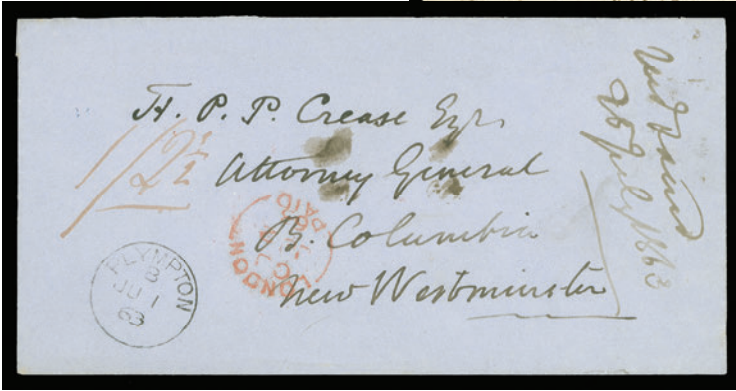 H. P. P. Crease Esqr
Attorney General
B. Columbia
New Westminster
1/2½
PLYMPTON
B
JU 1
63
LONDON
PAID
26 July 1863